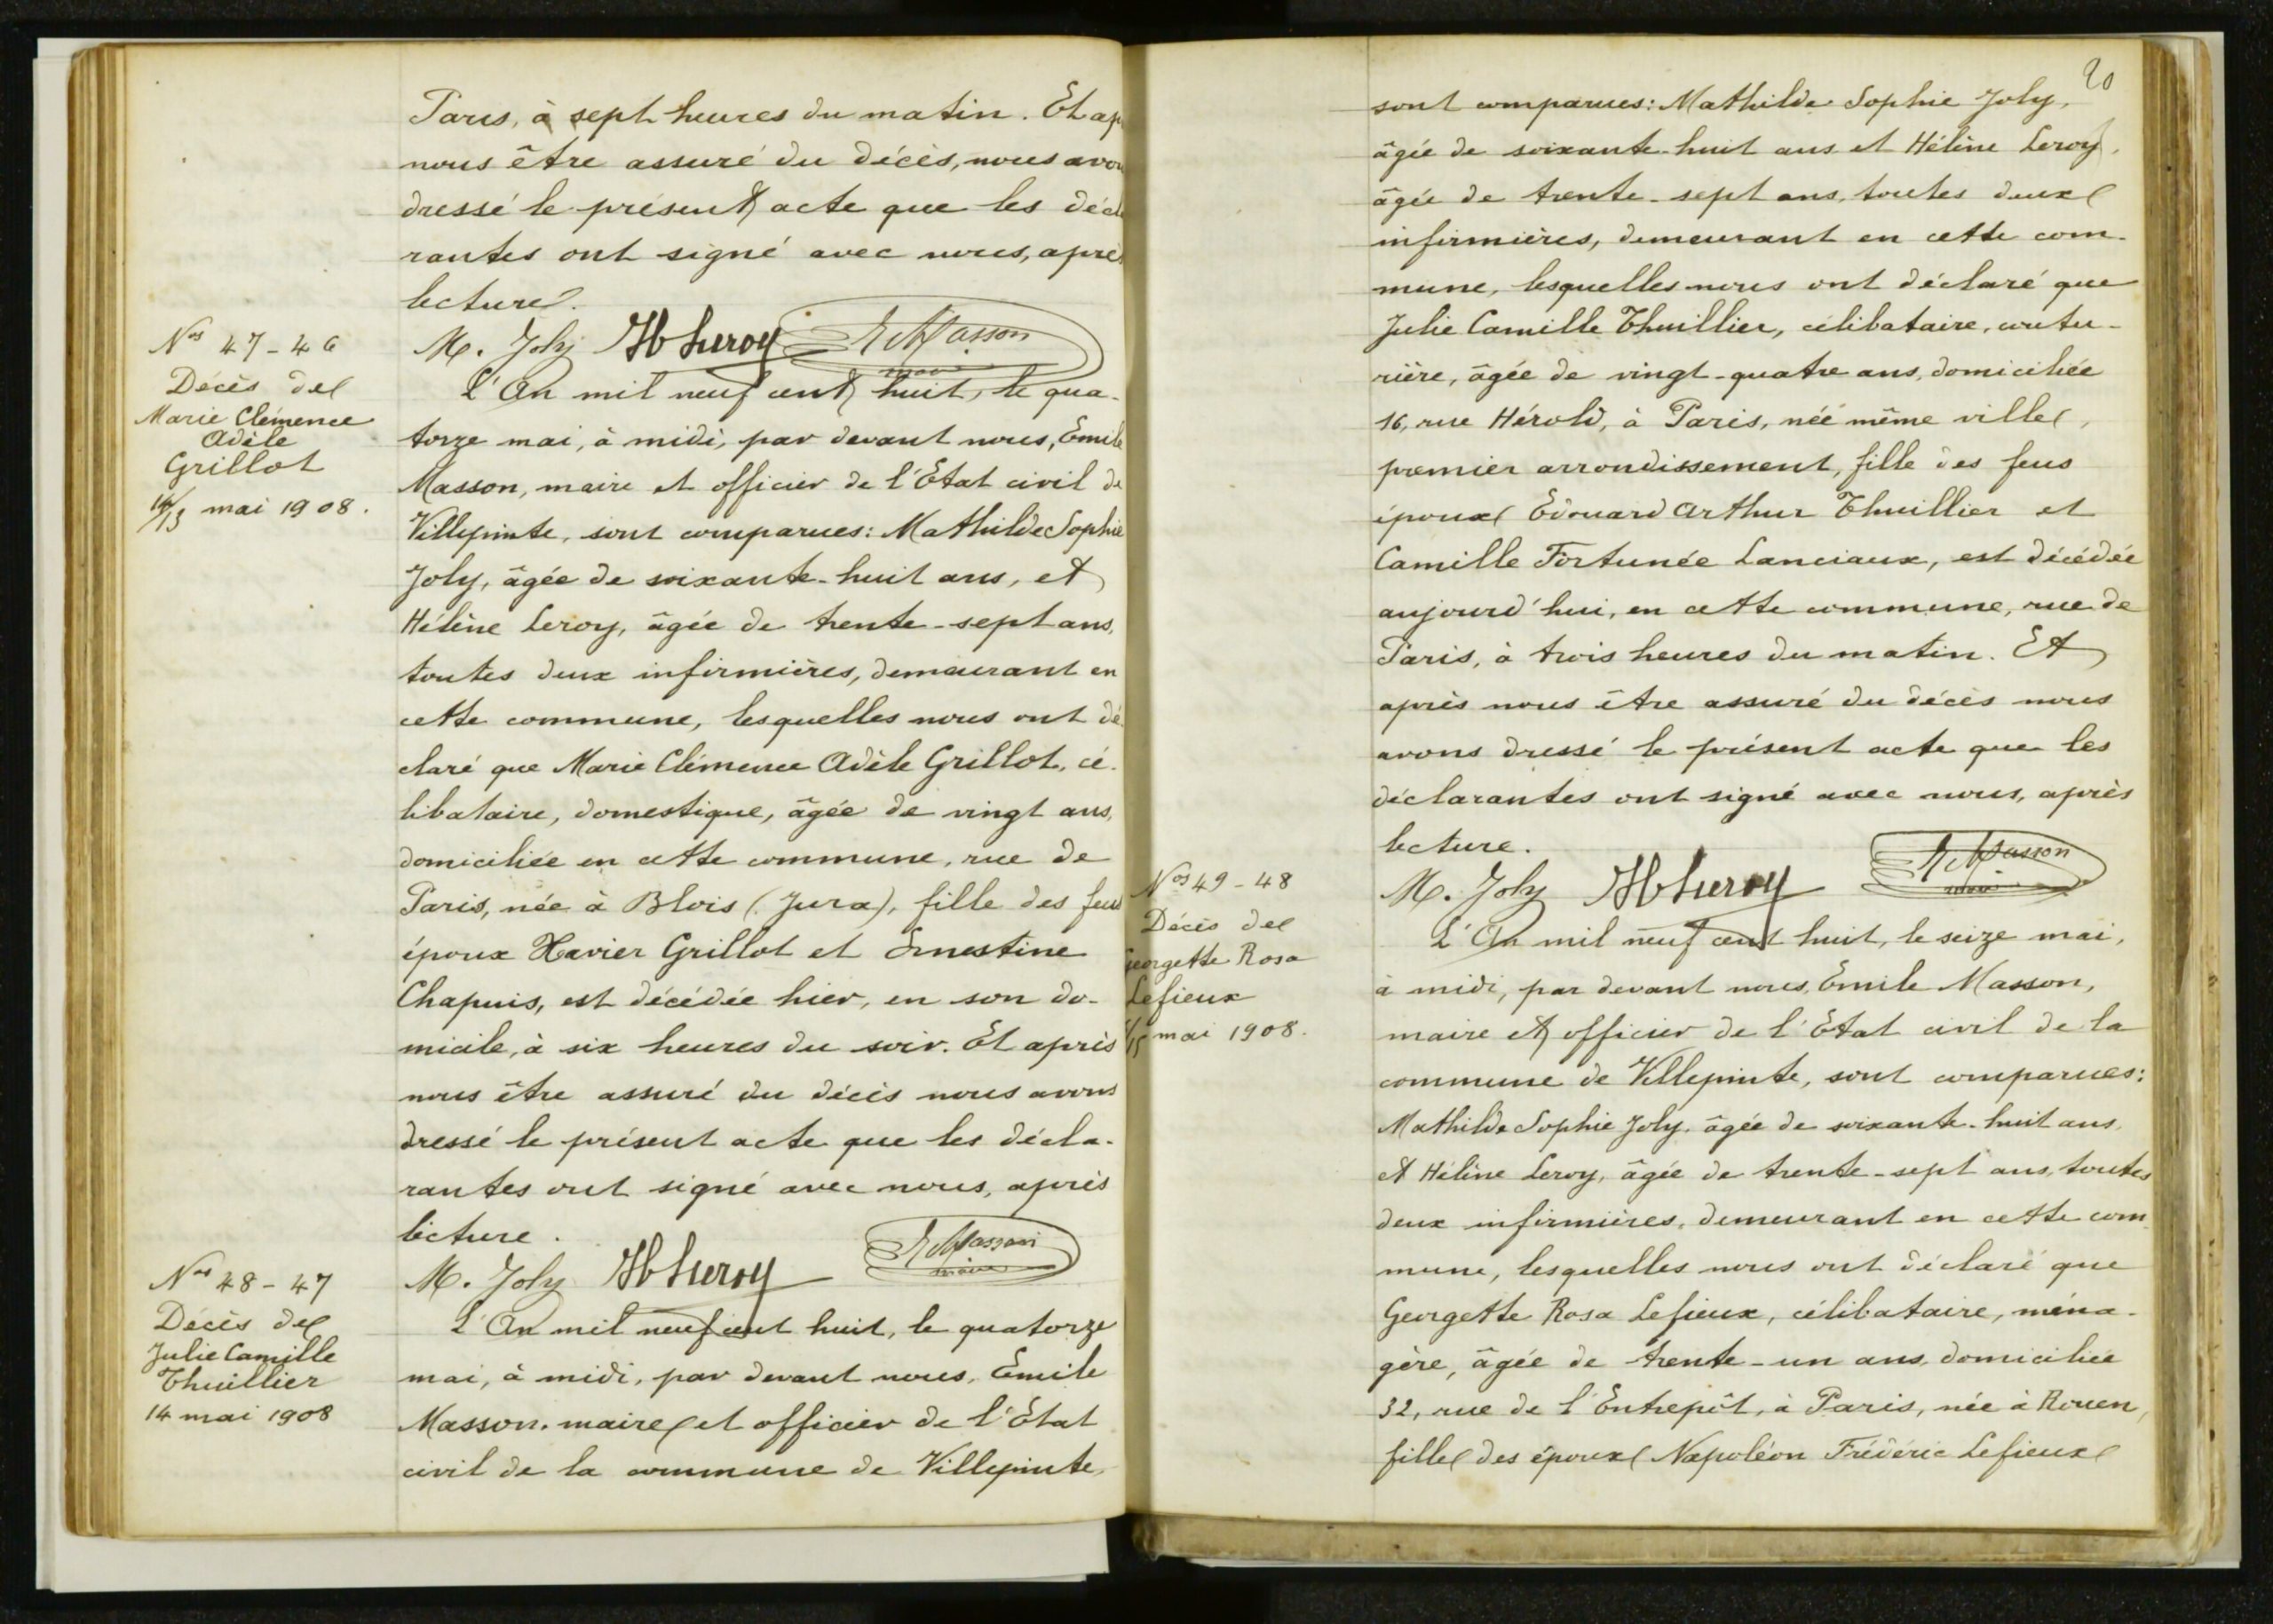 Paris, à sept heures du matin. Et ap
nous être assuré du décès, nous avon
dressé le présent acte que les décla
rantes ont signé avec nous, après
lecture.
M. Joly H Leroy E Masson
maire
Nos 47-46
Décès de
Marie Clémence
Adèle
Grillot
14/13 mai 1908.
L'An mil neuf cent huit, le qua-
torze mai, à midi, par devant nous, Emile
Masson, maire et officier de l'Etat civil de
Villepinte, sont comparues: Mathilde Sophie
Joly, âgée de soixante-huit ans, et
Hélène Leroy, âgée de trente-sept ans,
toutes deux infirmières, demeurant en
cette commune, lesquelles nous ont dé
claré que Marie Clémence Adèle Grillot, cé-
libataire, domestique, âgée de vingt ans,
domiciliée en cette commune, rue de
Paris, née à Blois (Jura), fille des feus
époux Xavier Grillot et Ernestine
Chapuis, est décédée hier, en son do-
micile, à six heures du soir. Et après
nous être assuré du décès nous avons
dressé le présent acte que les décla-
rantes ont signé avec nous, après
lecture.
M. Joly H Leroy E Masson
maire
Nos 48-47
Décès de
Julie Camille
Thuillier
14 mai 1908
L'An mil neuf cent huit, le quatorze
mai, à midi, par devant nous, Emile
Masson, maire et officier de l'Etat
civil de la commune de Villepinte,
20
sont comparues: Mathilde Sophie Joly,
âgée de soixante-huit ans et Hélène Leroy,
âgée de trente-sept ans, toutes deux
infirmières, demeurant en cette com-
mune, lesquelles nous ont déclaré que
Julie Camille Thuillier, célibataire, coutu-
rière, âgée de vingt-quatre ans, domiciliée
16, rue Hérold, à Paris, née même ville,
premier arrondissement, fille des feus
époux Edouard Arthur Thuillier et
Camille Fortunée Lanciaux, est décédée
aujourd'hui, en cette commune, rue de
Paris, à trois heures du matin. Et
après nous être assuré du décès nous
avons dressé le présent acte que les
déclarantes ont signé avec nous, après
lecture.
M. Joly H Leroy E Masson
maire
Nos 49-48
Décès de
Georgette Rosa
Lefieux
/15 mai 1908.
L'An mil neuf cent huit, le seize mai,
à midi, par devant nous, Emile Masson,
maire et officier de l'Etat civil de la
commune de Villepinte, sont comparues:
Mathilde Sophie Joly, âgée de soixante-huit ans,
et Hélène Leroy, âgée de trente-sept ans, toutes
deux infirmières, demeurant en cette com
mune, lesquelles nous ont déclaré que
Georgette Rosa Lefieux, célibataire, ména-
gère, âgée de trente-un ans, domiciliée
32, rue de l'Entrepôt, à Paris, née à Rouen,
fille des époux Napoléon Frédéric Lefieux